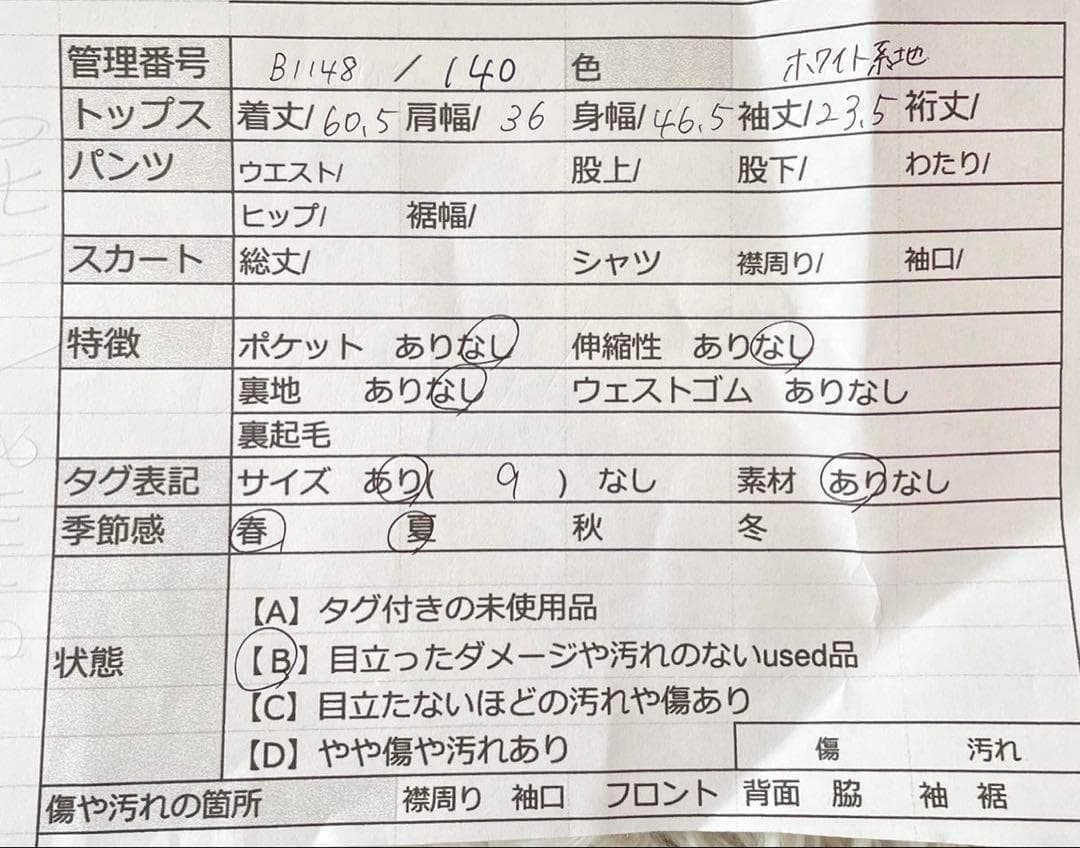 管理番号 B1148 / 140 色 ホワイト系地
トップス 着丈/60.5 肩幅/ 36 身幅/46.5 袖丈/23.5 裄丈/
パンツ ウエスト/ 股上/ 股下/ わたり/
ヒップ/ 裾幅/
スカート 総丈/ シャツ 襟周り/ 袖口/
特徴 ポケット ありなし 伸縮性 ありなし
裏地 ありなし ウェストゴム ありなし
裏起毛
タグ表記 サイズ あり( 9 ) なし 素材 ありなし
季節感 春 夏 秋 冬
【A】タグ付きの未使用品
状態 【B】目立ったダメージや汚れのないused品
【C】目立たないほどの汚れや傷あり
【D】やや傷や汚れあり 傷 汚れ
傷や汚れの箇所 襟周り 袖口 フロント 背面 脇 袖 裾